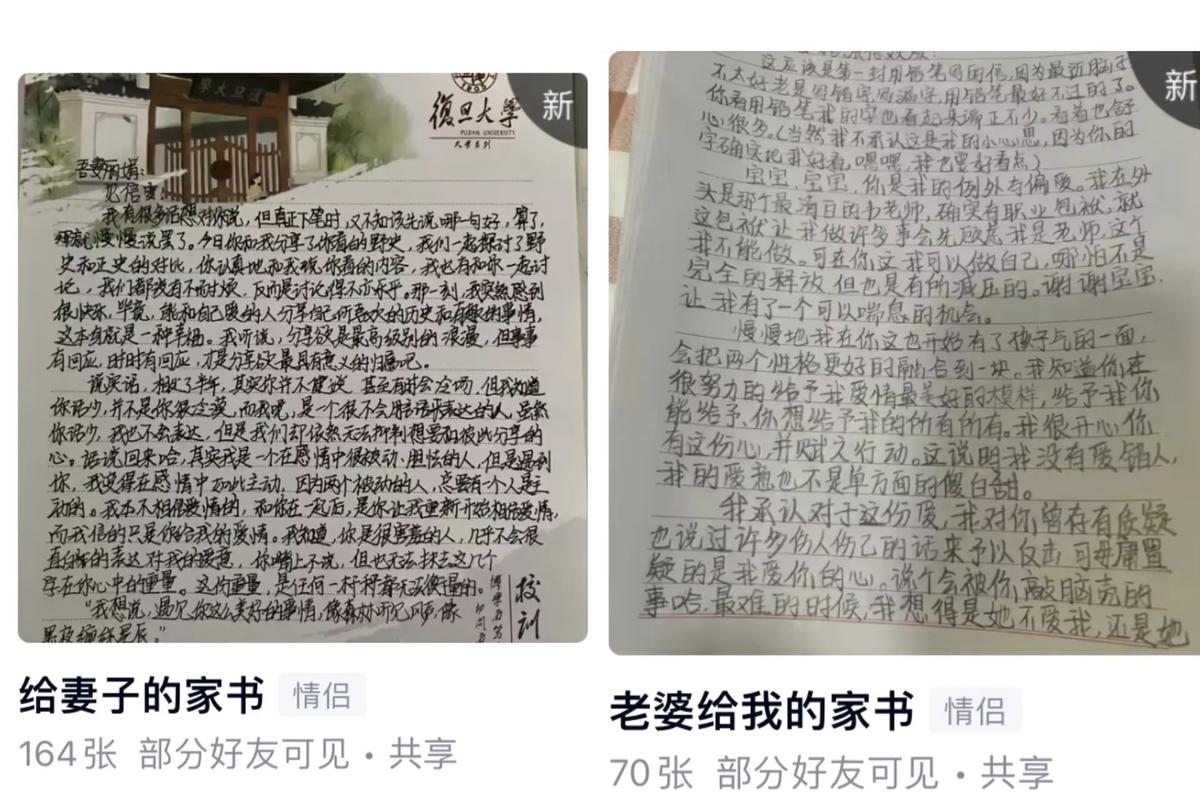 新
復旦大學
FUDAN UNIVERSITY
大学系列
吾妻丽娟:
见信安
我有很多话想对你说，但真正下笔时，又不知该先说哪一句好，算了，
那就慢慢说罢了。今日你和我分享了你看的野史，我们一起探讨了野
史和正史的对比，你认真地和我说你看的内容，我也有和你一起讨
论，我们都没有不耐烦，反而是讨论得不亦乐乎。那一刻，我突然感到
很快乐，毕竟，能和自己爱的人分享自己所喜欢的历史和有趣的事情，
这本身就是一种幸福。我听说，分享欲是最高级别的浪漫，但事事
有回应，时时有回应，才是分享欲最具有意义的归宿吧。
说实话，相处了半年，其实你并不健谈，甚至有时会冷场，但我知道
你话少，并不是你很冷漠，而我呢，是一个很不会用话语来表达的人，虽然
你话少，我也不会表达，但是我们却依然无法抑制想要和彼此分享的
心。话说回来哈，其实我是一个在感情中很被动、胆怯的人，但是遇到
你，我觉得在感情中如此主动，因为两个被动的人，总要有一个人是主
动的。我本不相信爱情的，和你在一起后，是你让我重新开始相信爱情，
而我信的只是你给我的爱情。我知道，你是很害羞的人，几乎不会很
直白的表达对我的爱意，你嘴上不说，但也无法抹去这几个
字在你心中的重量。这份重量，是任何一杆秤都无法衡量的。
"我想说，遇见你这么美好的事情，像森林听见风声，像
黑夜缠绵星辰。"
校训
给妻子的家书 情侣
164张 部分好友可见・共享
新
这应该是第一封用铅笔写的信，因为最近脑子
不太好老是写错字写漏字，用铅笔最好不过的了。
你看用铅笔我的字也看起来端正不少。看着也舒
心很多。(当然我不承认这是我的小心思，因为你的
字确实比我好看，嘿嘿，我也要好看点)
宝宝，宝宝，你是我的例外与偏爱。我在外
头是那个最清白的书老师，确实有职业包袱，就
这包袱让我做许多事会先顾忌我是老师，这个
我不能做。可在你这我可以做自己，哪怕不是
完全的释放，但也是有所减压的。谢谢宝宝，
让我有了一个可以喘息的机会。
慢慢地我在你这也开始有了孩子气的一面，
会把两个性格更好的融合到一块。我知道你在
很努力的给予我爱情最美好的模样，给予我你
能给予，你想给予我的所有所有。我很开心你
有这份心，并赋之行动。这说明我没有爱错人，
我的爱意也不是单方面的傻白甜。
我承认对于这份爱，我对你曾存有质疑
也说过许多伤人伤己的话来予以反击，可毋庸置
疑的是我爱你的心。说个会被你敲脑壳的
事哈，最难的时候，我想得是她不爱我，还是她
老婆给我的家书 情侣
70张 部分好友可见・共享